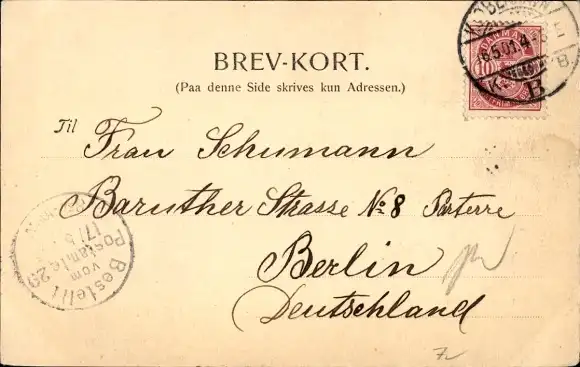 BREV-KORT.
(Paa denne Side skrives kun Adressen.)
DANMARK
10
16.5.01.
K. B
Til
Frau Schumann
Baruther Strasse No 8 Parterre
Berlin
Deutschland
Bestellt
vom
Postamte 29
17/5